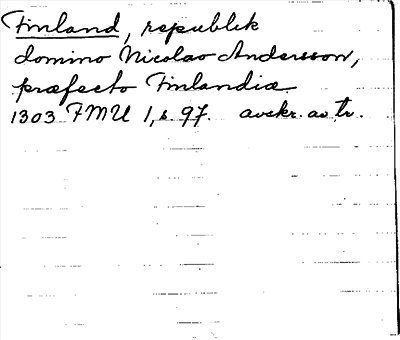 Finland, republik
domino Nicolao Andersson,
præfecto Finlandiæ
1303 FMU 1, s. 97. avskr. av tr.